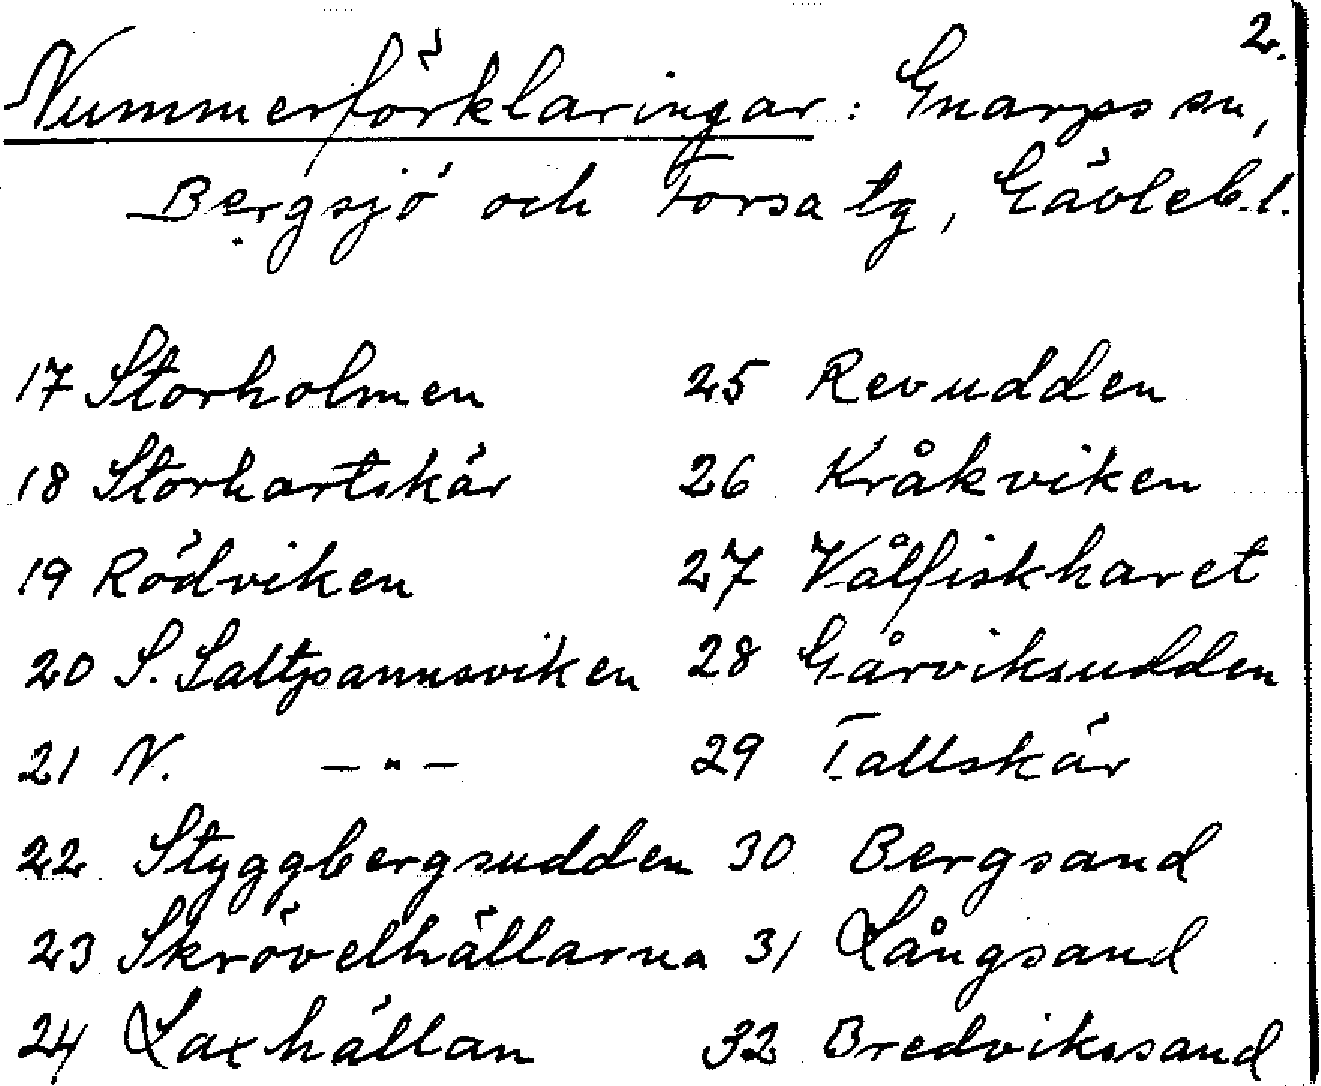 2.
Nummerförklaringar: Gnarps sn,
Bergsjö och Forsa tg, Gävleb.l.
17 Storholmen
18 Storhartskär
19 Rödviken
20 S. Saltpannsviken
21 N. — " —
22 Styggbergsudden
23 Skrövelhällarna
24 Laxhällan
25 Revudden
26 Kråkviken
27 Vålfiskharet
28 Gårviksudden
29 Tallskär
30 Bergsand
31 Långsand
32 Bredvikssand